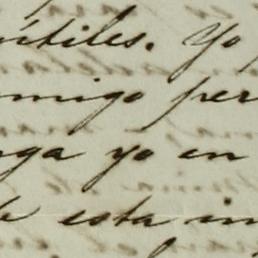 útiles. Yo
migo per
ga yo en
esta in